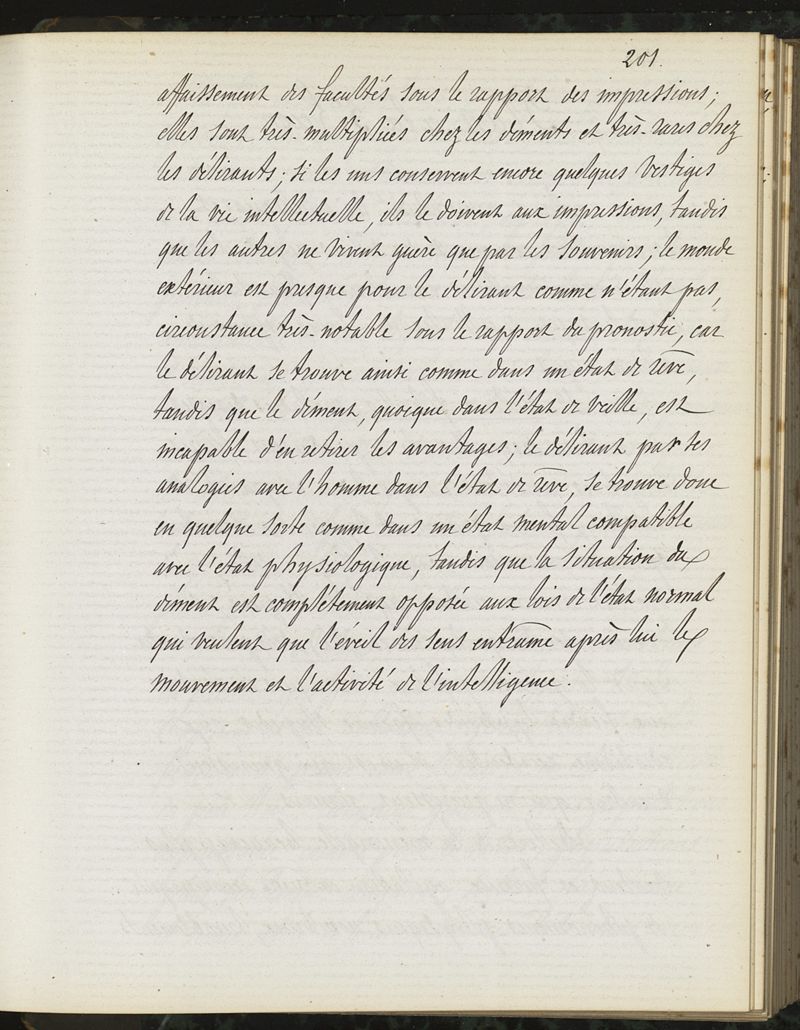 201.
affaissement des facultés sous le rapport des impressions;
elles sont très-multipliées chez les déments et très-rares chez
les délirants; si les uns conservent encore quelques vestiges
de la vie intellectuelle, ils le doivent aux impressions, tandis
que les autres ne vivent guère que par les souvenirs; le monde
extérieur est presque pour le délirant comme n'étant pas,
circonstance très-notable sous le rapport du pronostic, car
le délirant se trouve ainsi comme dans un état de rêve,
tandis que le dément, quoique dans l'état de veille, est
incapable d'en retirer les avantages; le délirant par ses
analogies avec l'homme dans l'état de rêve, se trouve donc
en quelque sorte comme dans un état mental compatible
avec l'état physiologique, tandis que la situation du
dément est complétement opposée aux lois de l'état normal
qui veulent que l'éveil des sens entraîne après lui le
mouvement et l'activité de l'intelligence.